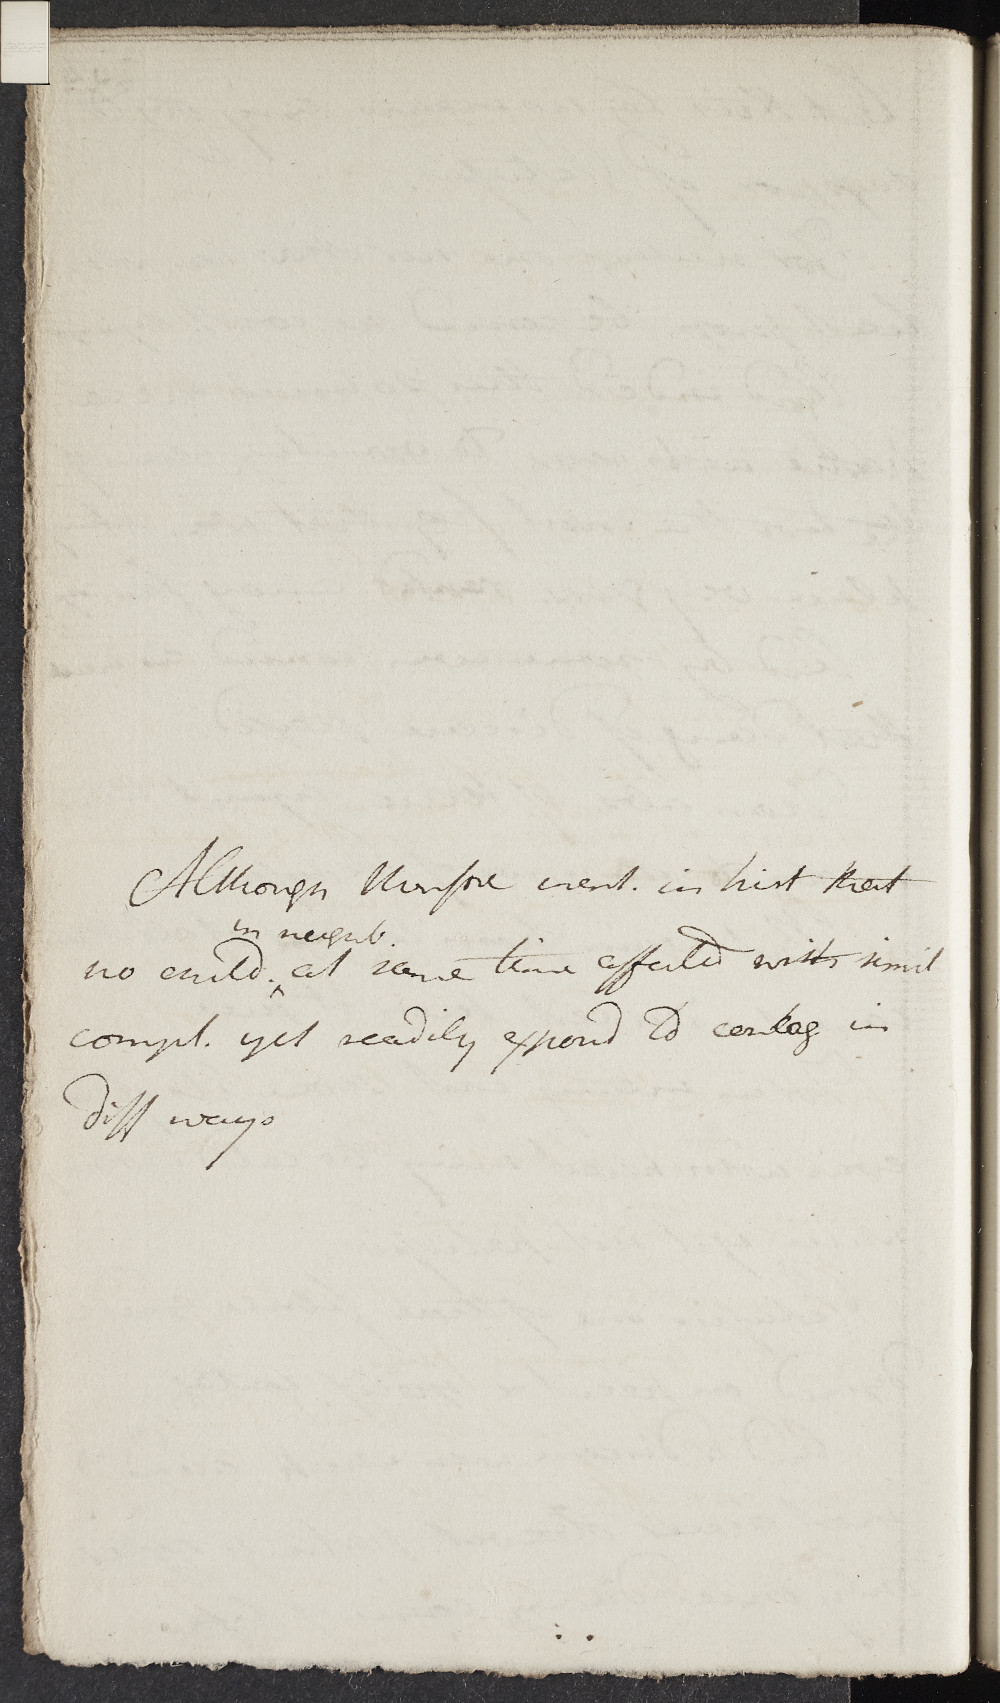 Although therefore ment. in hist that
in neighb.
no child. at same time affected with simil
compl. yet readily expond to contag in
diff ways